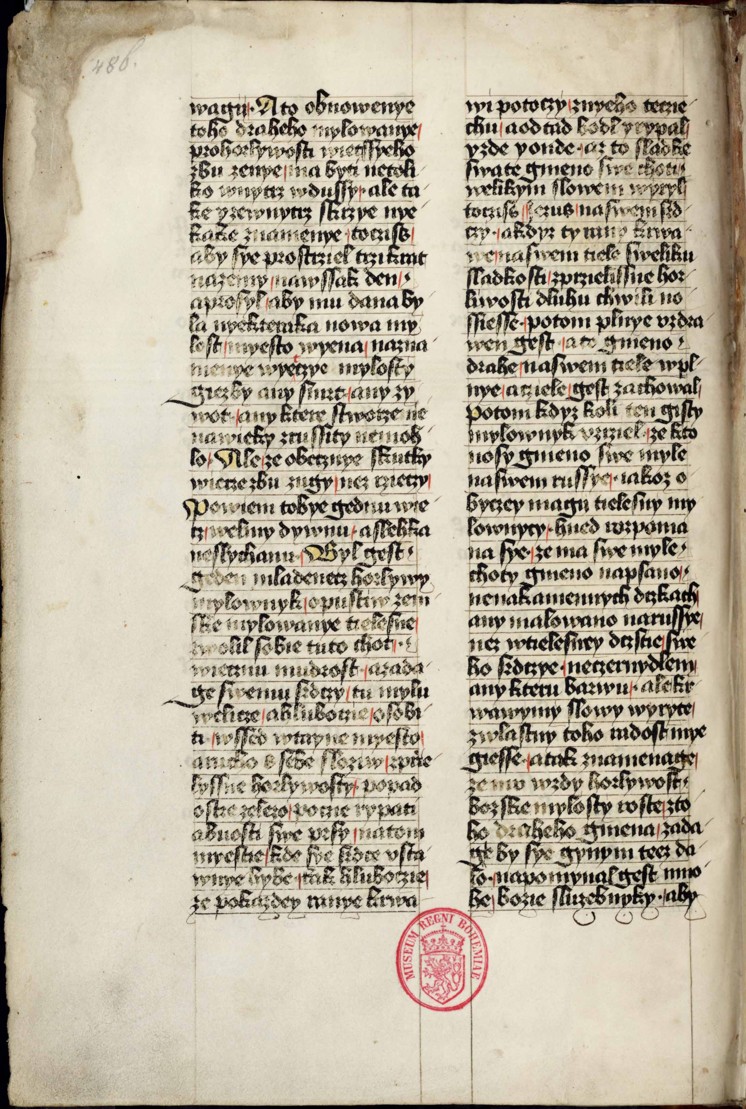 486.
wagu. A to obnowenye
toho draheho mylowanye
prohorlywosti wietssyeho
zbu zenye ma byti netoli
ko wnytrz wdussy. ale ta
ke y zewnytrz skrzye nye
kake znamenye tocziss
aby sye prostrziel trzikrat
nazemy nawssak den
aprosyl aby mu dana by
la nyekteraka nowa my
lest myesto wyena nazna
menye wyeczye mylosty
gziezby any smrt any zy
wot. any ktere stworze ne
nawieky zrussity nemoh
lo. Ale ze obecznye skutky
wiecze zbu zugy nez rzieczy
Powiem tobye gednu wie
cz welmy dywnu. aslekka
neslychanu. Byl gest
geden mladenecz horlywy
mylownyk opustiw zem
ske mylowanye tielesne
zwolil sobie tuto chot.
wiecznu mudrost. azada
ge swemu srdczy tu mylu
welicze ahluboczie osobi
ti. wssed wtayne myesto
anieho s sebe slozyw zprze
lyssne horlywosty popad
ostre zelezo pocze rypati
abuosti swe prsy natom
myestie kde sye srdce vsta
wnye hybe. tak hluboczie
ze pokazdey ranye krwa
wi potoczy znyeho teczie
chu aodtad bodl y rypal
y zde y onde. az to sladke
swate gmeno swe choti
welikym slowem wyryl
tociuss Jezus naswem srd
czy. akdyz ty rany krwa
we naswem tiele sweliku
sladkosti zprzielissne hor
liwosti dluhu chwili no
siesse. potom plnye vzdra
wen gest. a to gmeno
drahe naswem tiele wpl
nye acziele gest zachowal
Potom kdyz koli ten gisty
mylownyk vzrziel. ze kto
nosy gmeno swe myle
naswem russye. iakoz o
byczey magu tielesny my
lownycy. hned wzpoma
na sye. ze ma swe myle
choty gmeno napsano
nenakamennych dckach
any malowano narussye
nez wtielesney dcstie swe
ho srdczye. neczernydlem
any kteru barwu. ale kr
wawymy slowy wyryte
zwlastny toho radost mye
giesse. atak znamenage
ze mo wzdy horlywost
bozske mylosty roste zto
ho draheho gmena zada
ge by sye gynym teez da
lo. napomynal gest mno
he bozie sluzebnyky. aby
MUSEUM REGNI BOHEMIAE